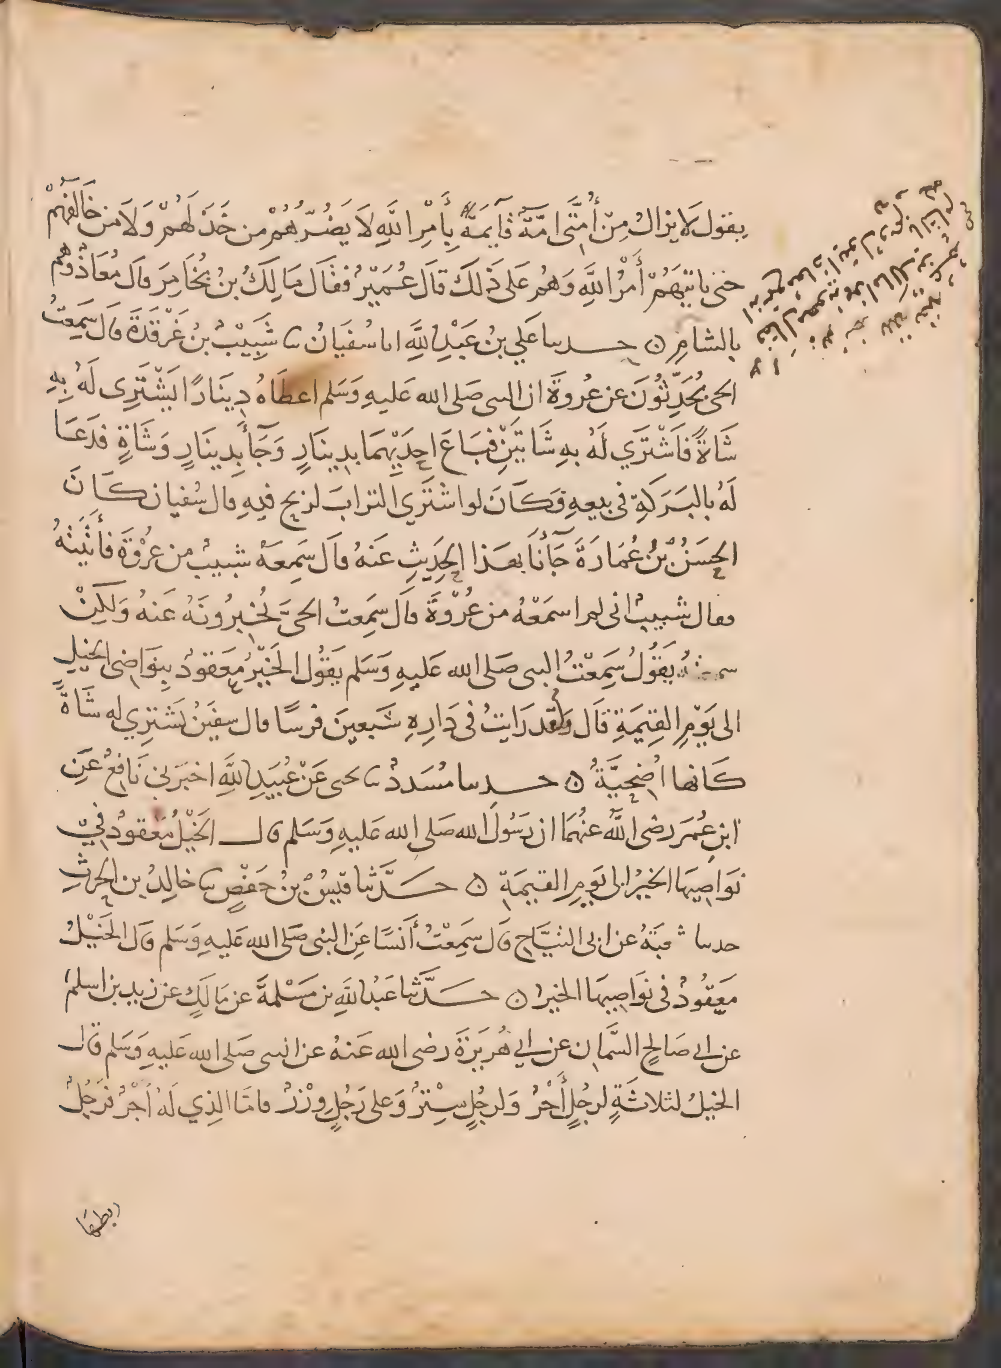 يقول لَا يزالُ مِنْ أُمَّتى امّةٌ قَآيمَةٌ بِأَمْرِ اللَّهِ لَا يَضُرُّهُمْ من خَذَلَهُمْ وَلَا مَن خَالَفَهُمْ
حتى ياتيَهُمْ أَمْرُ اللَّهِ وَهُم عَلَى ذٰلكَ قَالَ عُمَيْرٌ فقَالَ مَالِكُ بنُ يُخَامِرَ قَالَ مُعَاذٌ وهُم
بالشامِ ۞ حدثنا علي بن عَبْدِ اللَّهِ انا سُفيَانُ نا شَبِيْبُ بنُ غَرْقَدَةَ قَالَ سَمِعتُ
الحىَّ يُحَدِّثُونَ عَن عُروةَ ان النبى صَلى الله عَليهِ وَسَلم اعطَاهُ دِينَارًا يَشْتَرِى لَهُ بِهِ
شَاةً فَاشْتَرَي لَهُ بهِ شَاتَيْنِ فَبَاعَ احِدَيْهِمَا بدِينَارٍ وَجَآءَ بدِينَارٍ وَشَاةٍ فَدَعَا
لَهُ بالبَرَكةِ فى بيعهِ وَكَانَ لو اشتَرَي الترابَ لربح فيهِ قال سُفيان كَانَ
الحَسَنُ بْنُ عُمَارَةَ جَآنَا بهَذا الحَدِيثِ عَنهُ قَالَ سَمِعَهُ شبيبٌ من عُرْوَةَ فأَتَيتُهُ
فقال شَبيبٌ انى لم اسمَعْهُ من عُرْوَةَ قَالَ سَمِعتُ الحىَّ يُخْبِرُونَهُ عَنهُ وَلٰكِنْ
سمعتُهُ يَقُولُ سَمِعْتُ النبى صَلى الله عَليهِ وَسَلم يَقُول الخَيْرُ مَعقودٌ بِنَوَاصِى الخيلِ
الى يَوْمِ القِيمَةِ قَال وَلقد رَايتُ فى دَارِهِ سَبعينَ فرسًا قال سفيٰنُ يَشترِي له شَاةً
كَانها اُضحِيَّةٌ ۞ حدثنا مُسَددٌ نا يحيى عَنْ عُبَيدِ اللَّهِ اخبَرنى نَافِعٌ عَنِ
ابنِ عُمَرَ رضى اللَّهُ عنهُمَا ان رَسُولَ الله صَلى الله عَليهِ وَسَلم قال الخَيْلُ مَعقودٌ فِىْ
نَوَاصِيهَا الخيرُ الى يَومِ القيمَةِ ۞ حَدَّثنا قَيْسُ بنُ حَفْصٍ نا خالِدُ بن الحٰرثِ
حدثنا شعبَةُ عن ابى التيَّاحِ قَال سَمِعْتُ أَنَسًا عَنِ النبى صَلى الله عَليهِ وَسَلم قَال الخَيْلُ
مَعقُودٌ فى نَوَاصِيهَا الخيرُ ۞ حَدَّثنا عَبدُ اللَّهِ بن مَسْلمةَ عن مَالكٍ عن زيد بن اسلمَ
عن ابى صَالحٍ السَّمانِ عن ابي هُرَيْرَةَ رضى الله عَنهُ عن النبى صَلى الله عَليهِ وَسَلم قَال
الخيلُ لثلاثَةٍ لرجُلٍ أَجْرٌ وَلرجُلٍ سِتْرٌ وَعلى رَجُلٍ وِزْرٌ فامَّا الذِي لَهُ اَجْرٌ فَرَجُلٌ
ربطها